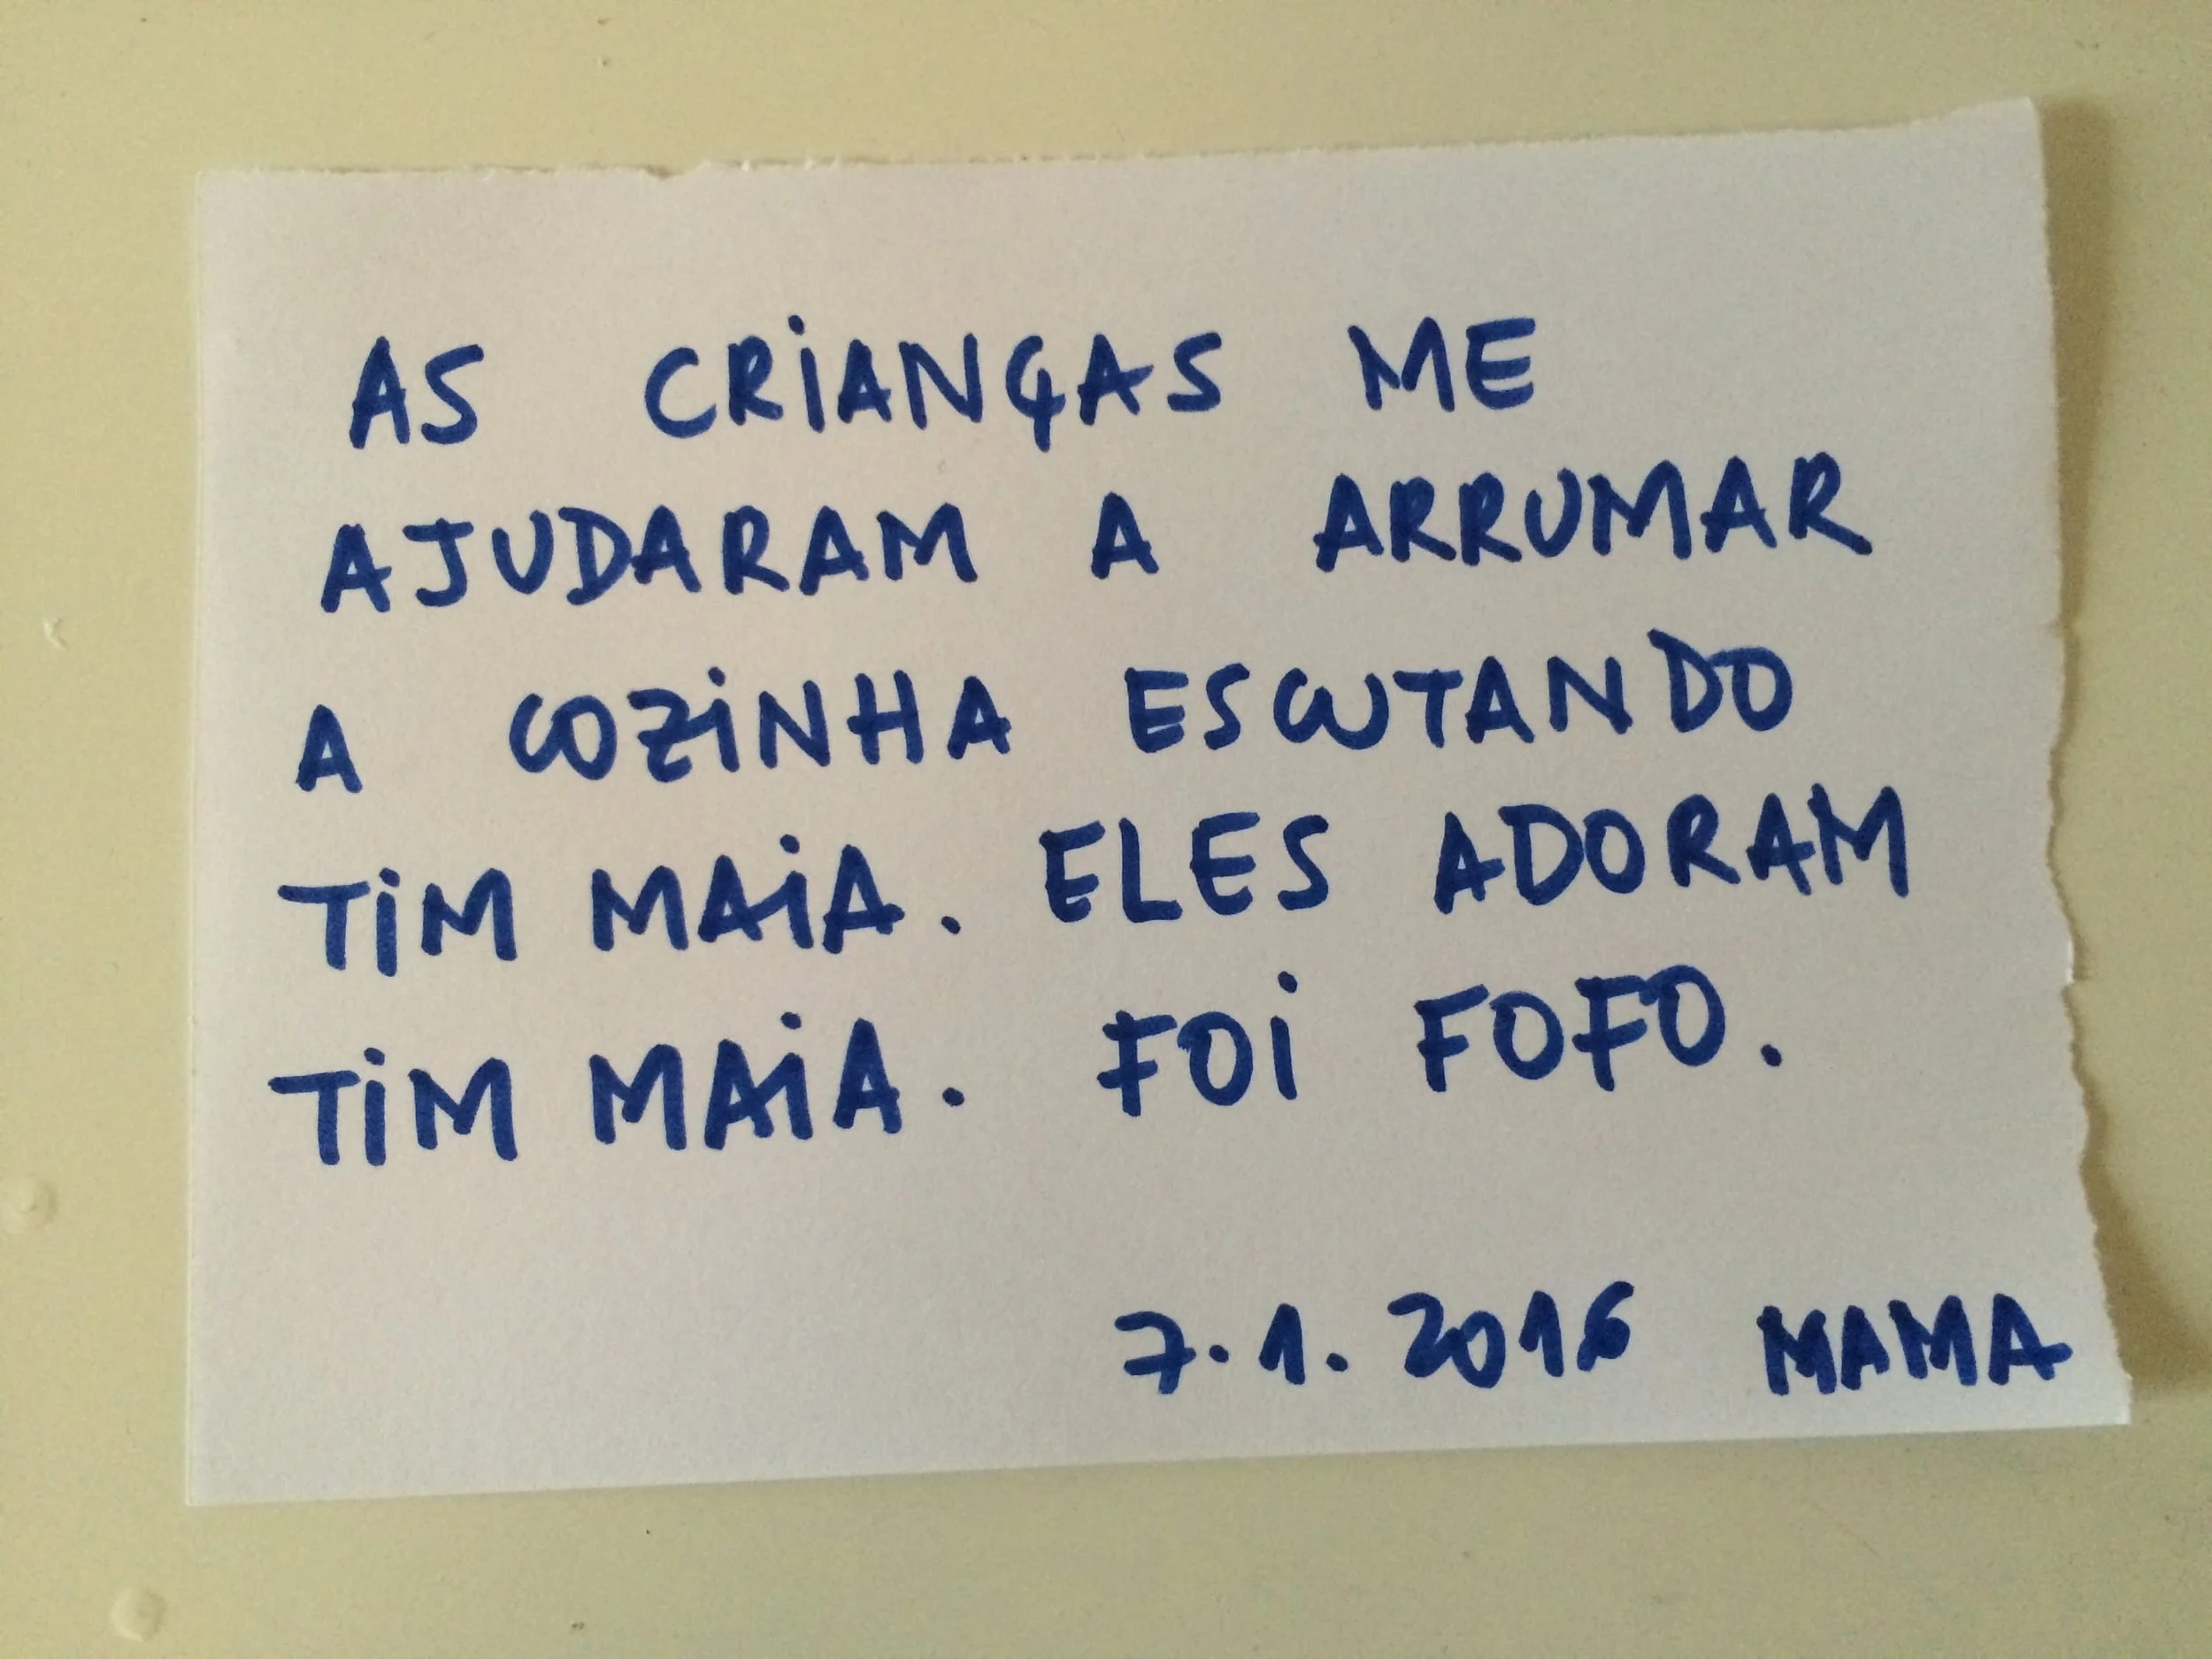 AS CRIANÇAS ME
AJUDARAM A ARRUMAR
A COZINHA ESCUTANDO
TIM MAIA. ELES ADORAM
TIM MAIA. FOI FOFO.
7.1.2016 MAMA